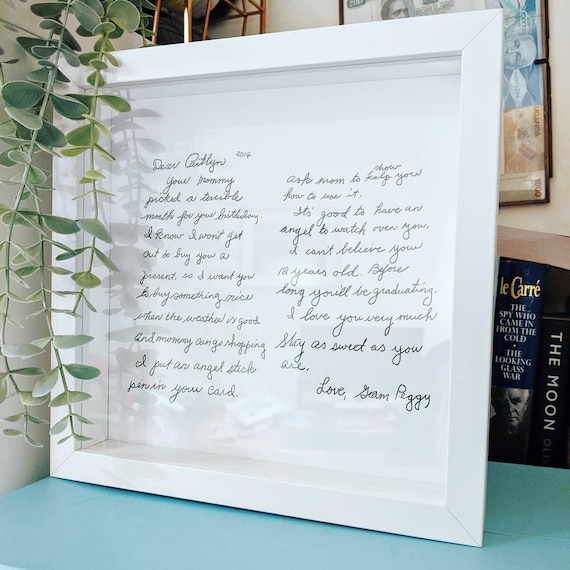 Dear Caitlyn 2014
your mommy
picked a terrible
month for your birthday.
I know I won't get
out to buy you a
present, so I want you
to buy something nice
when the weather is good
and mommy can go shopping
I put an angel stick
pen in your card.
ask mom to show
help you
how to use it.
It's good to have an
angel to watch over you.
I can't believe you
18 years old. Before
long you'll be graduating.
I love you very much
Stay as sweet as you
are.
Love, Gram Peggy
le Carré
THE SPY WHO
CAME IN
FROM THE
COLD
THE LOOKING
GLASS WAR
THE MOON
UGANDA